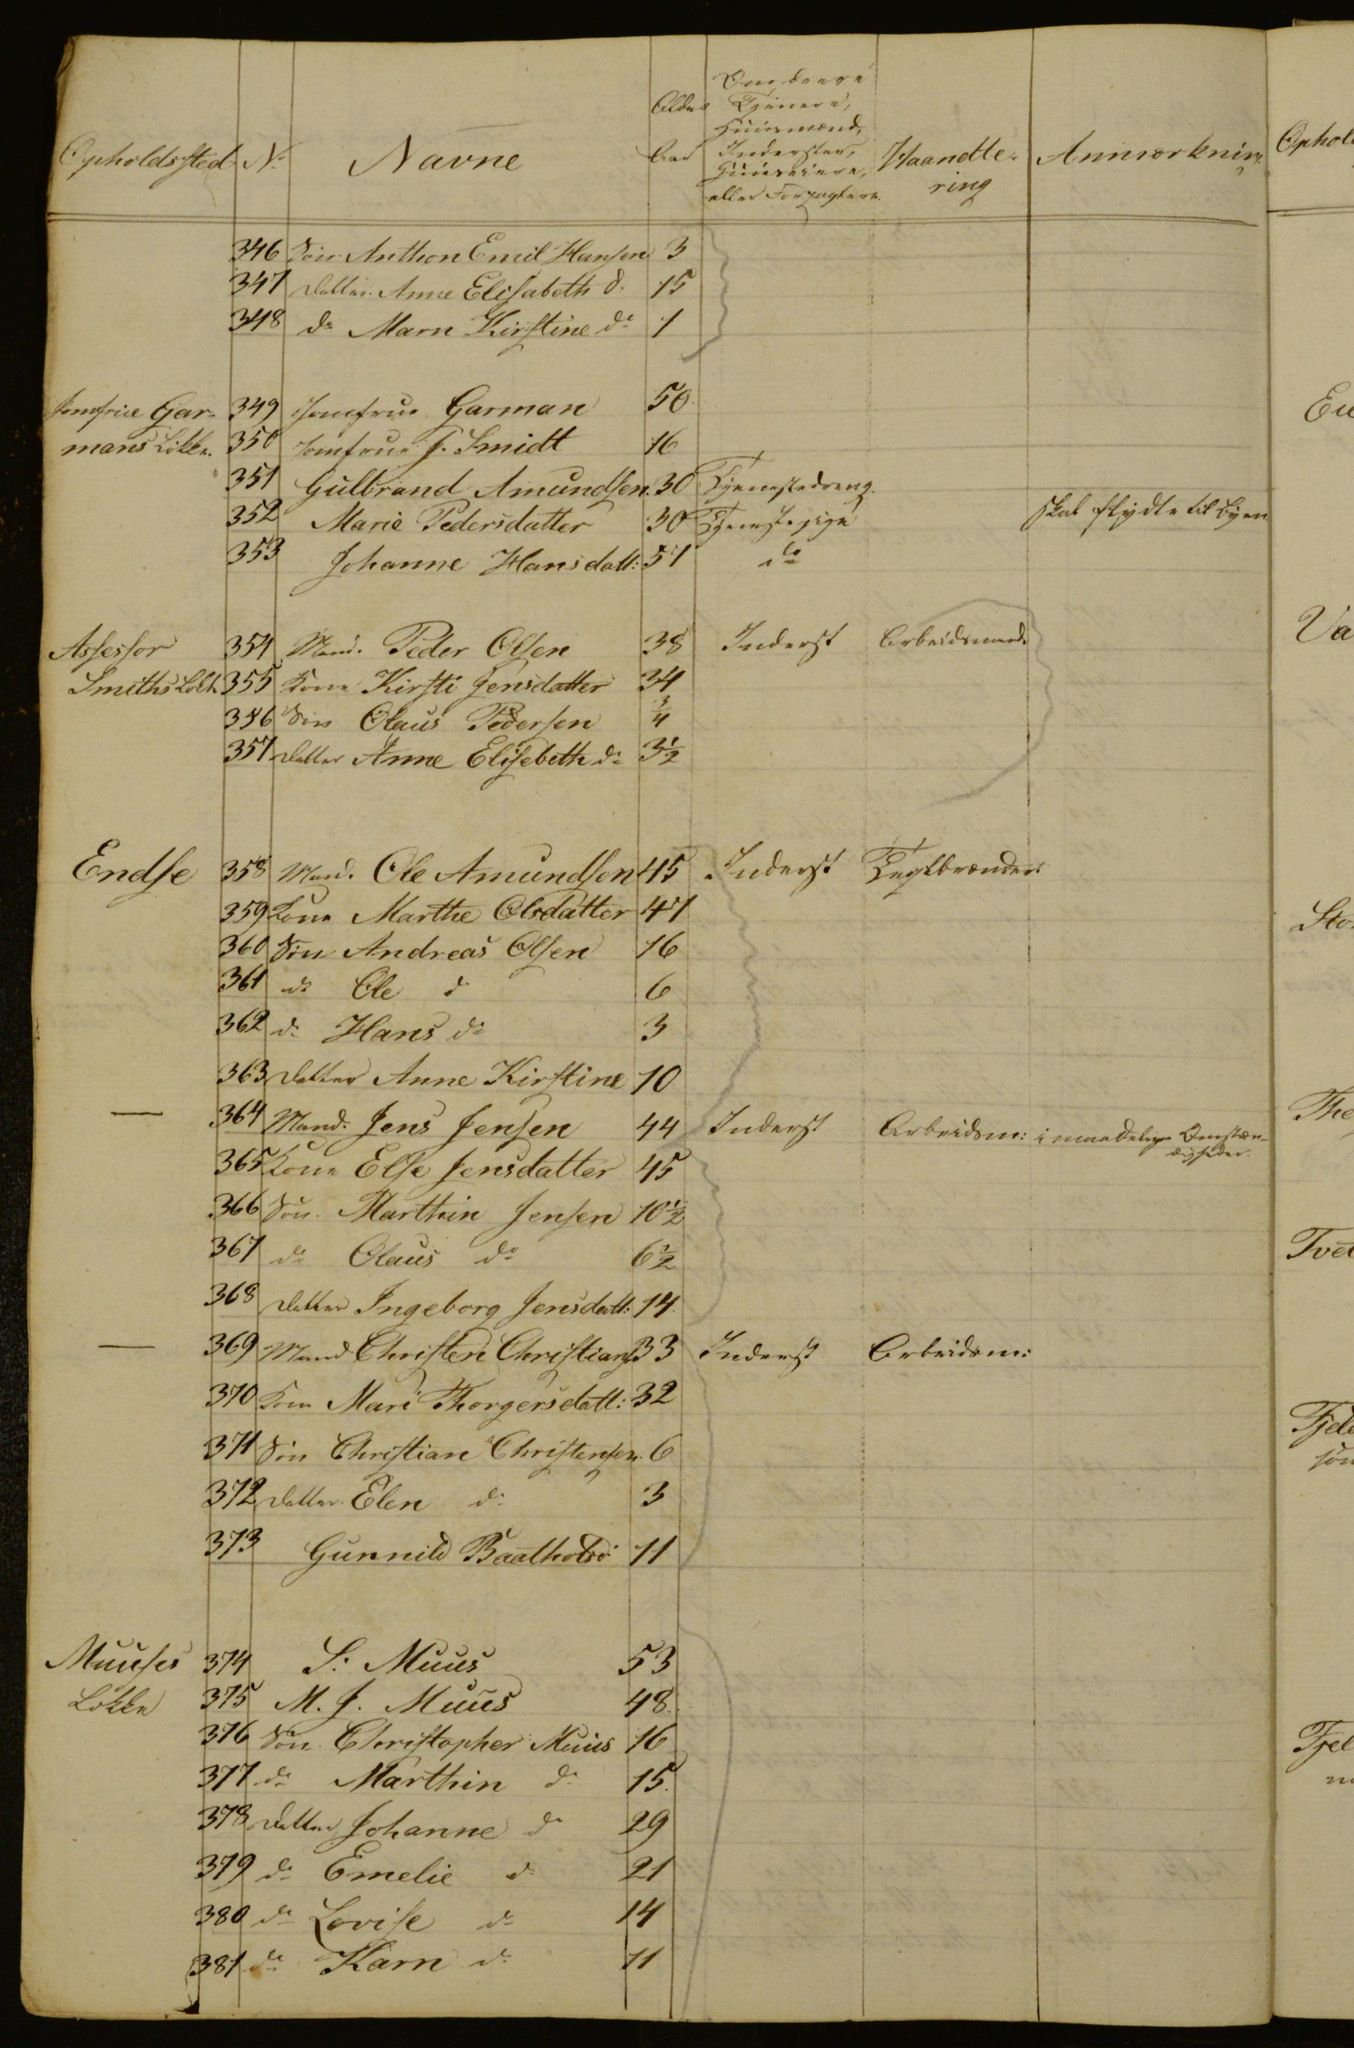 Opholdssted No Navne Alder Aar Om beere Tjenere, Huusmænd, Inderster, Huuseiere, eller Forpagtere. Haandtering Anmærkning
346 Søn Anthon Emil Hansen 3
347 Datter Anne Elisabeth do 15
348 do Marn Kirstine do 1
Jomfrue Gar- 349 Jomfrue Garman 50
mans Løkke. 350 Jomfrue J. Smidt 16
351 Gulbrand Amundsen 30 Tjenestedreng.
352 Marie Pedersdatter 30 Tjenestepige skal flydte til Byen
353 Johanne Hansdatt: 51 do
Assessor 354 Mand. Peder Olsen 38 Inderst Arbeidsmand
Smiths Løk. 355 Kone Kirsti Jensdatter 34
356 Søn Olaus Pedersen 3/4
357 Datter Anne Elisebeth do 3 1/2
Endse 358 Mand. Ole Amundsen 45 Inderst Teglbrænder
359 Kone Marthe Olsdatter 47
360 Søn Andreas Olsen 16
361 do Ole do 6
362 do Hans do 3
363 Datter Anne Kirstine 10
— 364 Mand. Jens Jensen 44 Inderst Arbeidsm: i maadelige Omstæn-
digheder.
365 Kone Else Jensdatter 45
366 Søn. Marthin Jensen 10 1/2
367 do Olaus do 6 1/2
368 Datter Ingeborg Jensdatt: 14
— 369 Mand Christen Christians 33 Inderst Arbeidsm:
370 Kone Mari Thorgersdatt: 32
371 Søn Christian Christensen 6
372 Datter Elen do 3
373 Gunnild 11
Muuses 374 S. Muus 53
Løkke 375 M. J. Muus 48
376 Søn Christopher Muus 16
377 do Marthin do 15.
378 Datter Johanne do 29
379 do Emelie do 21
380 do Lovise do 14
381 do Karn do 11
Ophol
Va
Sto
The
Tvet
Fjel